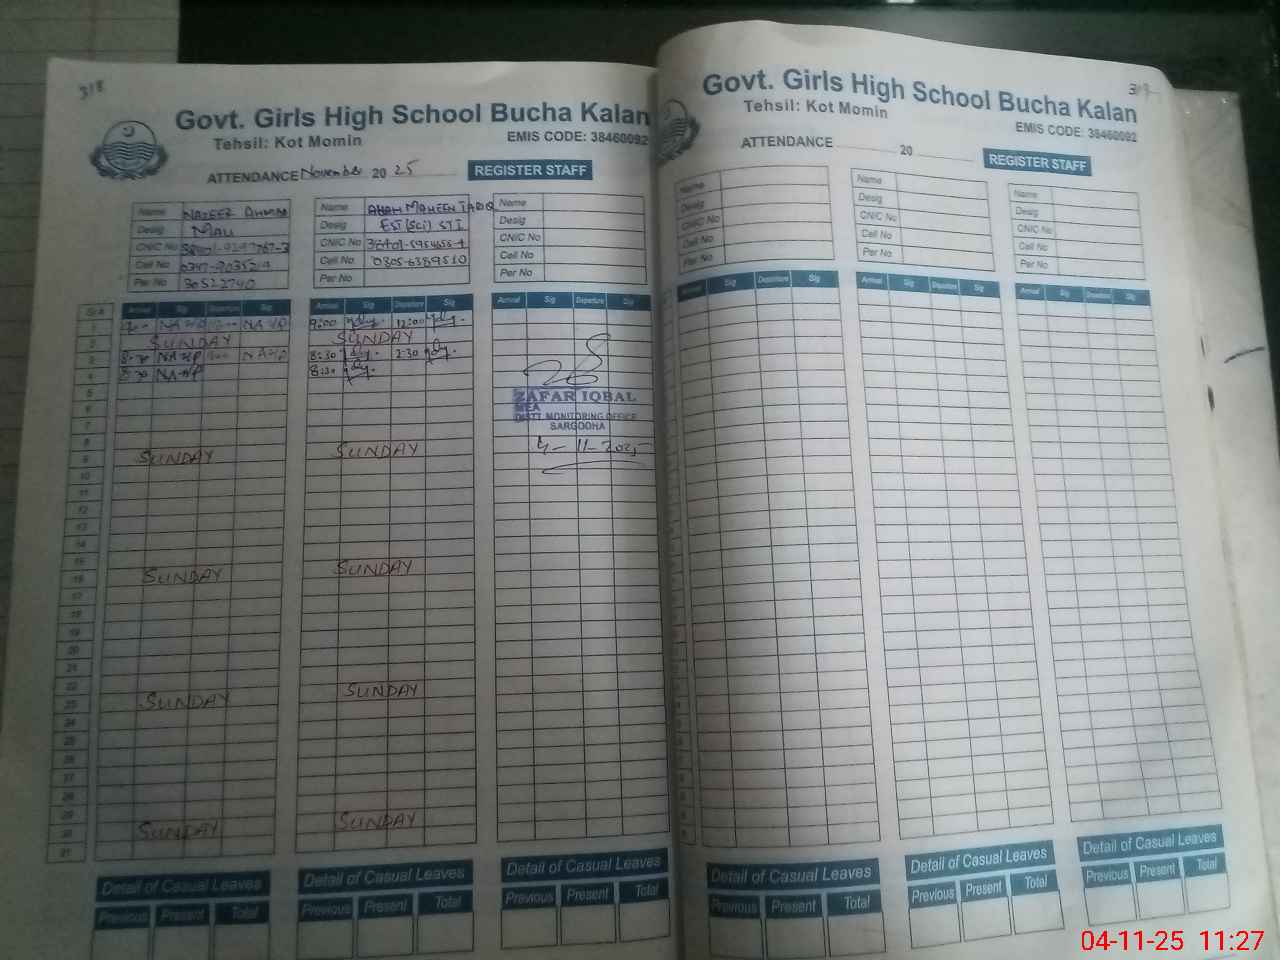 318
Govt. Girls High School Bucha Kalan
Tehsil: Kot Momin
EMIS CODE: 38460092
ATTENDANCE November 2025
REGISTER STAFF
Name NAZEER AHMAD
Desig MALI
CNIC No
Cell No
Per No 30522740
Name MAHEEN TARIQ
Desig EST (Sci) STI
CNIC No
Cell No 0305-6389510
Per No
Name
Desig
CNIC No
Cell No
Per No
Sr.#
Arrival Sig Departure Sig
Arrival Sig Departure Sig
Arrival Sig Departure Sig
1 9:00 12:00
2 SUNDAY SUNDAY
3 8:30 8:30 2:30
4 8:30 8:30
5
6
7
8
9 SUNDAY SUNDAY
10
11
12
13
14
15
16 SUNDAY SUNDAY
17
18
19
20
21
22
23 SUNDAY SUNDAY
24
25
26
27
28
29
30 SUNDAY SUNDAY
31
ZAFAR IQBAL
MEA
DISTT. MONITORING OFFICE
SARGODHA
4-11-2025
Detail of Casual Leaves
Previous Present Total
Detail of Casual Leaves
Previous Present Total
Detail of Casual Leaves
Previous Present Total
319
Govt. Girls High School Bucha Kalan
Tehsil: Kot Momin
EMIS CODE: 38460092
ATTENDANCE 20
REGISTER STAFF
Name
Desig
CNIC No
Cell No
Per No
Name
Desig
CNIC No
Cell No
Per No
Name
Desig
CNIC No
Cell No
Per No
Arrival Sig Departure Sig
Arrival Sig Departure Sig
Arrival Sig Departure Sig
Detail of Casual Leaves
Previous Present Total
Detail of Casual Leaves
Previous Present Total
Detail of Casual Leaves
Previous Present Total
04-11-25 11:27